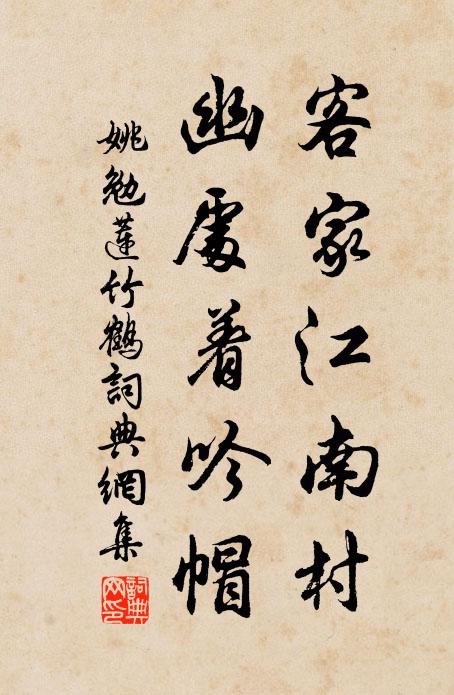 客家江南村
幽處着吟帽
姚勉蓮竹鶴詞典網集
詞典網印